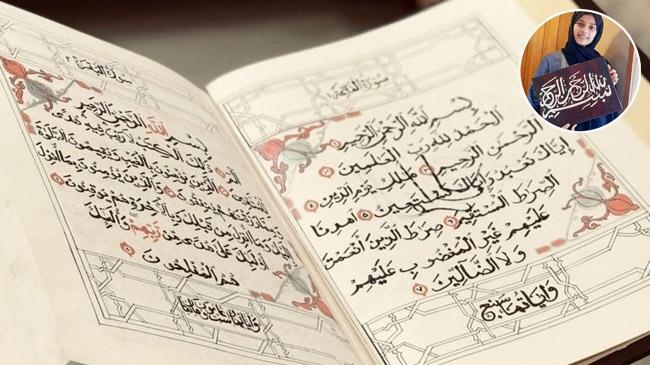 سورة الفاتحة
بسم الله الرحمن الرحيم
الحمد لله رب العلمين
الرحمن الرحيم ملك يوم الدين
إياك نعبد وإياك نستعين اهدنا
الصرط المستقيم صرط الذين أنعمت
عليهم غير المغضوب عليهم
ولا الضالين
وآياتها سبع
سورة البقرة ٢
بسم الله الرحمن الرحيم
الم ذلك الكتب لا ريب فيه هدى
للمتقين الذين يؤمنون بالغيب ويقيمون الصلوة
ومما رزقنهم ينفقون والذين يؤمنون بما أنزل
إليك وما أنزل من قبلك وبالآخرة هم يوقنون
أولئك على هدى من ربهم وأولئك
هم المفلحون
بسم الله الرحمن الرحيم